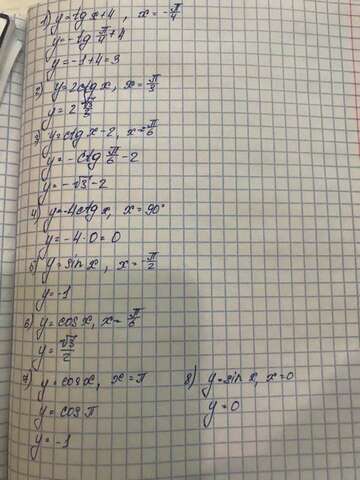 1) y=tgx+4, x=-π/4
y=-tg π/4+4
y=-1+4=3
2) y=2ctgx, x=π/3
y=2 √3/3
3) y=ctgx-2, x=-π/6
y=-ctg π/6-2
y=-√3-2
4) y=-4ctgx, x=90°
y=-4·0=0
5) y=sinx, x=-π/2
y=-1
6) y=cosx, x=-π/6
y=√3/2
7) y=cosx, x=π
y=cosπ
y=-1
8) y=sinx, x=0
y=0